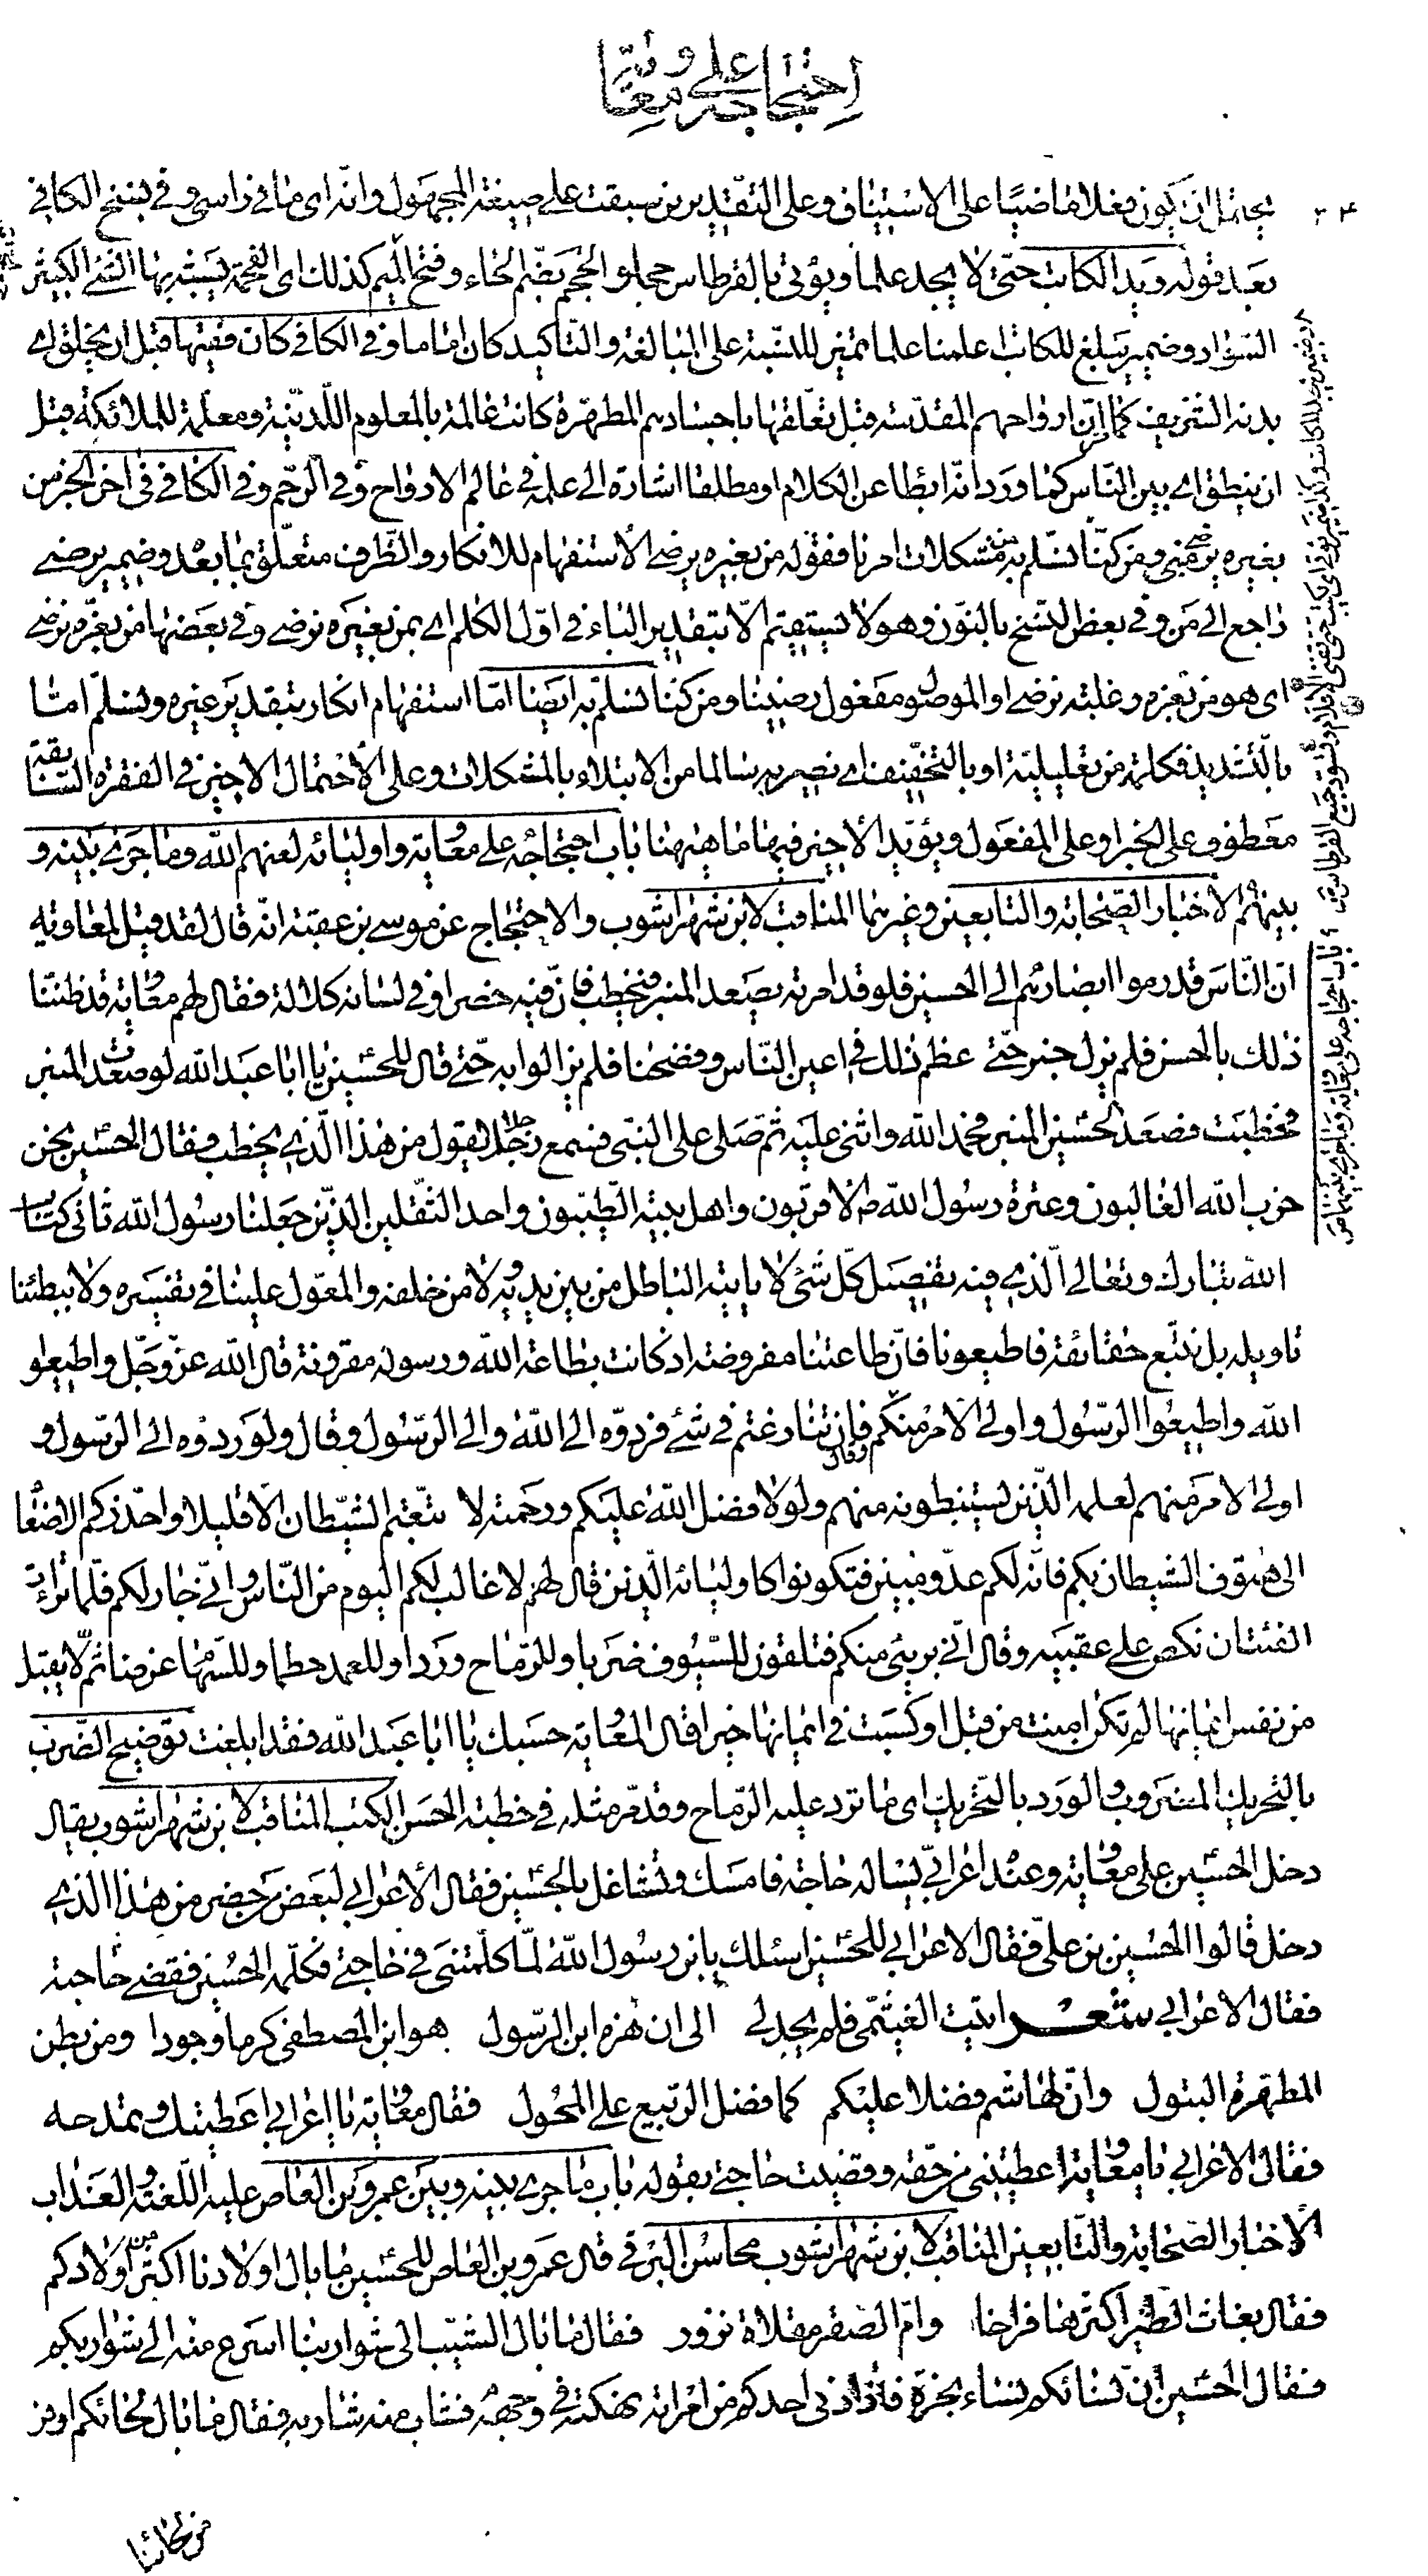 احتجاجه علی معویة
۳۴
يحتمل ان يكون فعلا ماضيًا على الاستيناف وعلى التقديرين سبقت على صيغة المجهول وانّه اى ما فى راسى وفى نسخ الكافى
بعد قوله ويد الكاتب حتّى لا يجد علما ويؤتى بالقرطاس حجلو الحجم بضم الحاء وفتح الميم كذلك اى الفحمة يشبه بها الشئ الكثير
السّواد وضمير يبلغ للكاتب اعلمنا علما تميز للنسبة على المبالغة والتاكيد كان اماما وفى الكافى كان فقيها قبل ان يخلق اى
بدنه الشريف كما انّ ارواحهم المقدّسة قبل تعلّقها باجسادهم المطهرة كانت عالمة بالعلوم اللّدنّية ومعلّمة للملائكة قبل
ان ينطق اى بين النّاس كما ورد انّه ابطا عن الكلام او مطلقا اشارة الى علمه فى عالم الارواح وفى الرّحم وفى الكافى فى اخر الخبر من
بغيره يرضى ومن كنّا نسلّم به من مشكلات امرنا فقوله من بغيره يرضى الاستفهام للانكار والظّرف متعلّق بما بعده وضمير يرضى
راجع الى من وفى بعض النّسخ بالنّون وهو لا يستقيم الا بتقدير الباء فى اوّل الكلام اى بمن بغيره نرضى وفى بعضها من بعزّه نرضى
اى هو من بعزه وغلبته نرضى او الموصول مفعول رضينا ومن كنّا نسلّم به ايضا امّا استفهام انكار بتقدير غيره ونسلّم امّا
بالتشديد فكلمة من تعليلية او بالتخفيف اى نصير به سالما من الابتلاء بالمشكلات وعلى الاحتمال الاخير فى الفقرة السّابقة
معطوف على الخبر او على المفعول ويؤيّد الاخير فيهما ما هيهنا باب احتجاجه على معوية واوليائه لعنهم الله وما جرى بينه و
بينهم الاخبار الصّحابة والتابعين وغيرهما المناقب لابن شهراشوب والاحتجاج عن موسى بن عقبة انّه قال لقد قيل لمعاوية
انّ النّاس قد رموا ابصارهم الى الحسين فلو قد امرته يصعد المنبر فيخطب فانّ فيه حصرا وفى لسانه كلالة فقال لهم معوية قد ظننّا
ذلك بالحسن فلم يزل حتى عظم ذلك فى اعين النّاس وفضحنا فلم يزالوا به حتى قال للحسين يا ابا عبد الله لو صعدت المنبر
فخطبت فصعد الحسين المنبر فحمد الله واثنى عليه ثم صلى على النبى فسمع رجلا يقول من هذا الّذى يخطب فقال الحسين نحن
حزب الله الغالبون وعترة رسول الله ص الاقربون واهل بيته الطّيبون واحد الثّقلين الّذين جعلنا رسول الله ثانى كتاب
الله تبارك وتعالى الّذى فيه تفصيل كلّ شئ لا ياتيه الباطل من بين يديه ولا من خلفه والمعوّل علينا فى تفسيره ولا يبطئنا
تاويله بل نتّبع حقائقه فاطيعونا فانّ طاعتنا مفروضة اذ كانت بطاعة الله ورسوله مقرونة قال الله عزّوجلّ واطيعوا
الله واطيعوا الرّسول واولى الامر منكم فان تنازعتم فى شئ فردّوه الى الله والى الرّسول وقال ولو ردّوه الى الرّسول و
اولى الامر منهم لعلمه الّذين يستنبطونه منهم ولولا فضل الله عليكم ورحمته لا تبعتم الشيطان الا قليلا واحذّركم الاصغاء
الى هتوف الشيطان بكم فانّه لكم عدو مبين فتكونوا كاوليائه الّذين قال لهم لا غالب لكم اليوم من النّاس وانّى جار لكم فلمّا تراءت
الفئتان نكص على عقبيه وقال انّى برىء منكم فتلقون للسّيوف ضربا وللرّماح وردا وللعمد حطما وللسّهام غرضا ثم لا يقبل
من نفس ايمانها لم تكن امنت من قبل او كسبت فى ايمانها خيرا قال معوية حسبك يا ابا عبد الله فقد ابلغت توضيح الضّرب
بالتحريك المضروب والورد بالتحريك اى ما ترد عليه الرّماح وقد مر مثله فى خطبة الحسن الكتب المناقب لابن شهراشوب يقال
دخل الحسين على معوية وعنده اعرابىّ يساله حاجة فامسك وتشاغل بالحسين فقال الاعرابى لبعض من حضر من هذا الذى
دخل قالوا الحسين بن علىّ فقال الاعرابى للحسين اسئلك يابن رسول الله لمّا كلّمته فى حاجتى فكلّمه الحسين فقضى حاجته
فقال الاعرابى شعر اتيت العبشمى فلم يجد لى الى ان هزه ابن الرّسول هو ابن المصطفى كرما وجودا ومن بطن
المطهرة البتول وانّ لهاشم فضلا عليكم كما فضل الرّبيع على المحول فقال معوية يا اعرابى اعطيتك وتمدحه
فقال الاعرابى يا معوية اعطيتنى من حقّه وقضيت حاجتى بقوله باب ما جرى بينه وبين عمرو بن العاص عليه اللّعنة والعذاب
الاخبار الصّحابة والتّابعين المناقب لابن شهراشوب محاسن البرقى قال عمرو بن العاص للحسين ما بال اولادنا اكثر من اولادكم
فقال بغاث الطّير اكثرها فراخا وامّ الصّقر مقلاة نزور فقال ما بال الشّيب الى شواربنا اسرع منه الى شواربكم
فقال الحسين انّ نسائكم نساء بخرة فاذا دنى احدكم من امراته نهكته فى وجهه فشاب منه شاربه فقال ما بال لحائكم اوفر
من لحائنا
۹ باب احتجاجه على معوية وما جرى بينهما